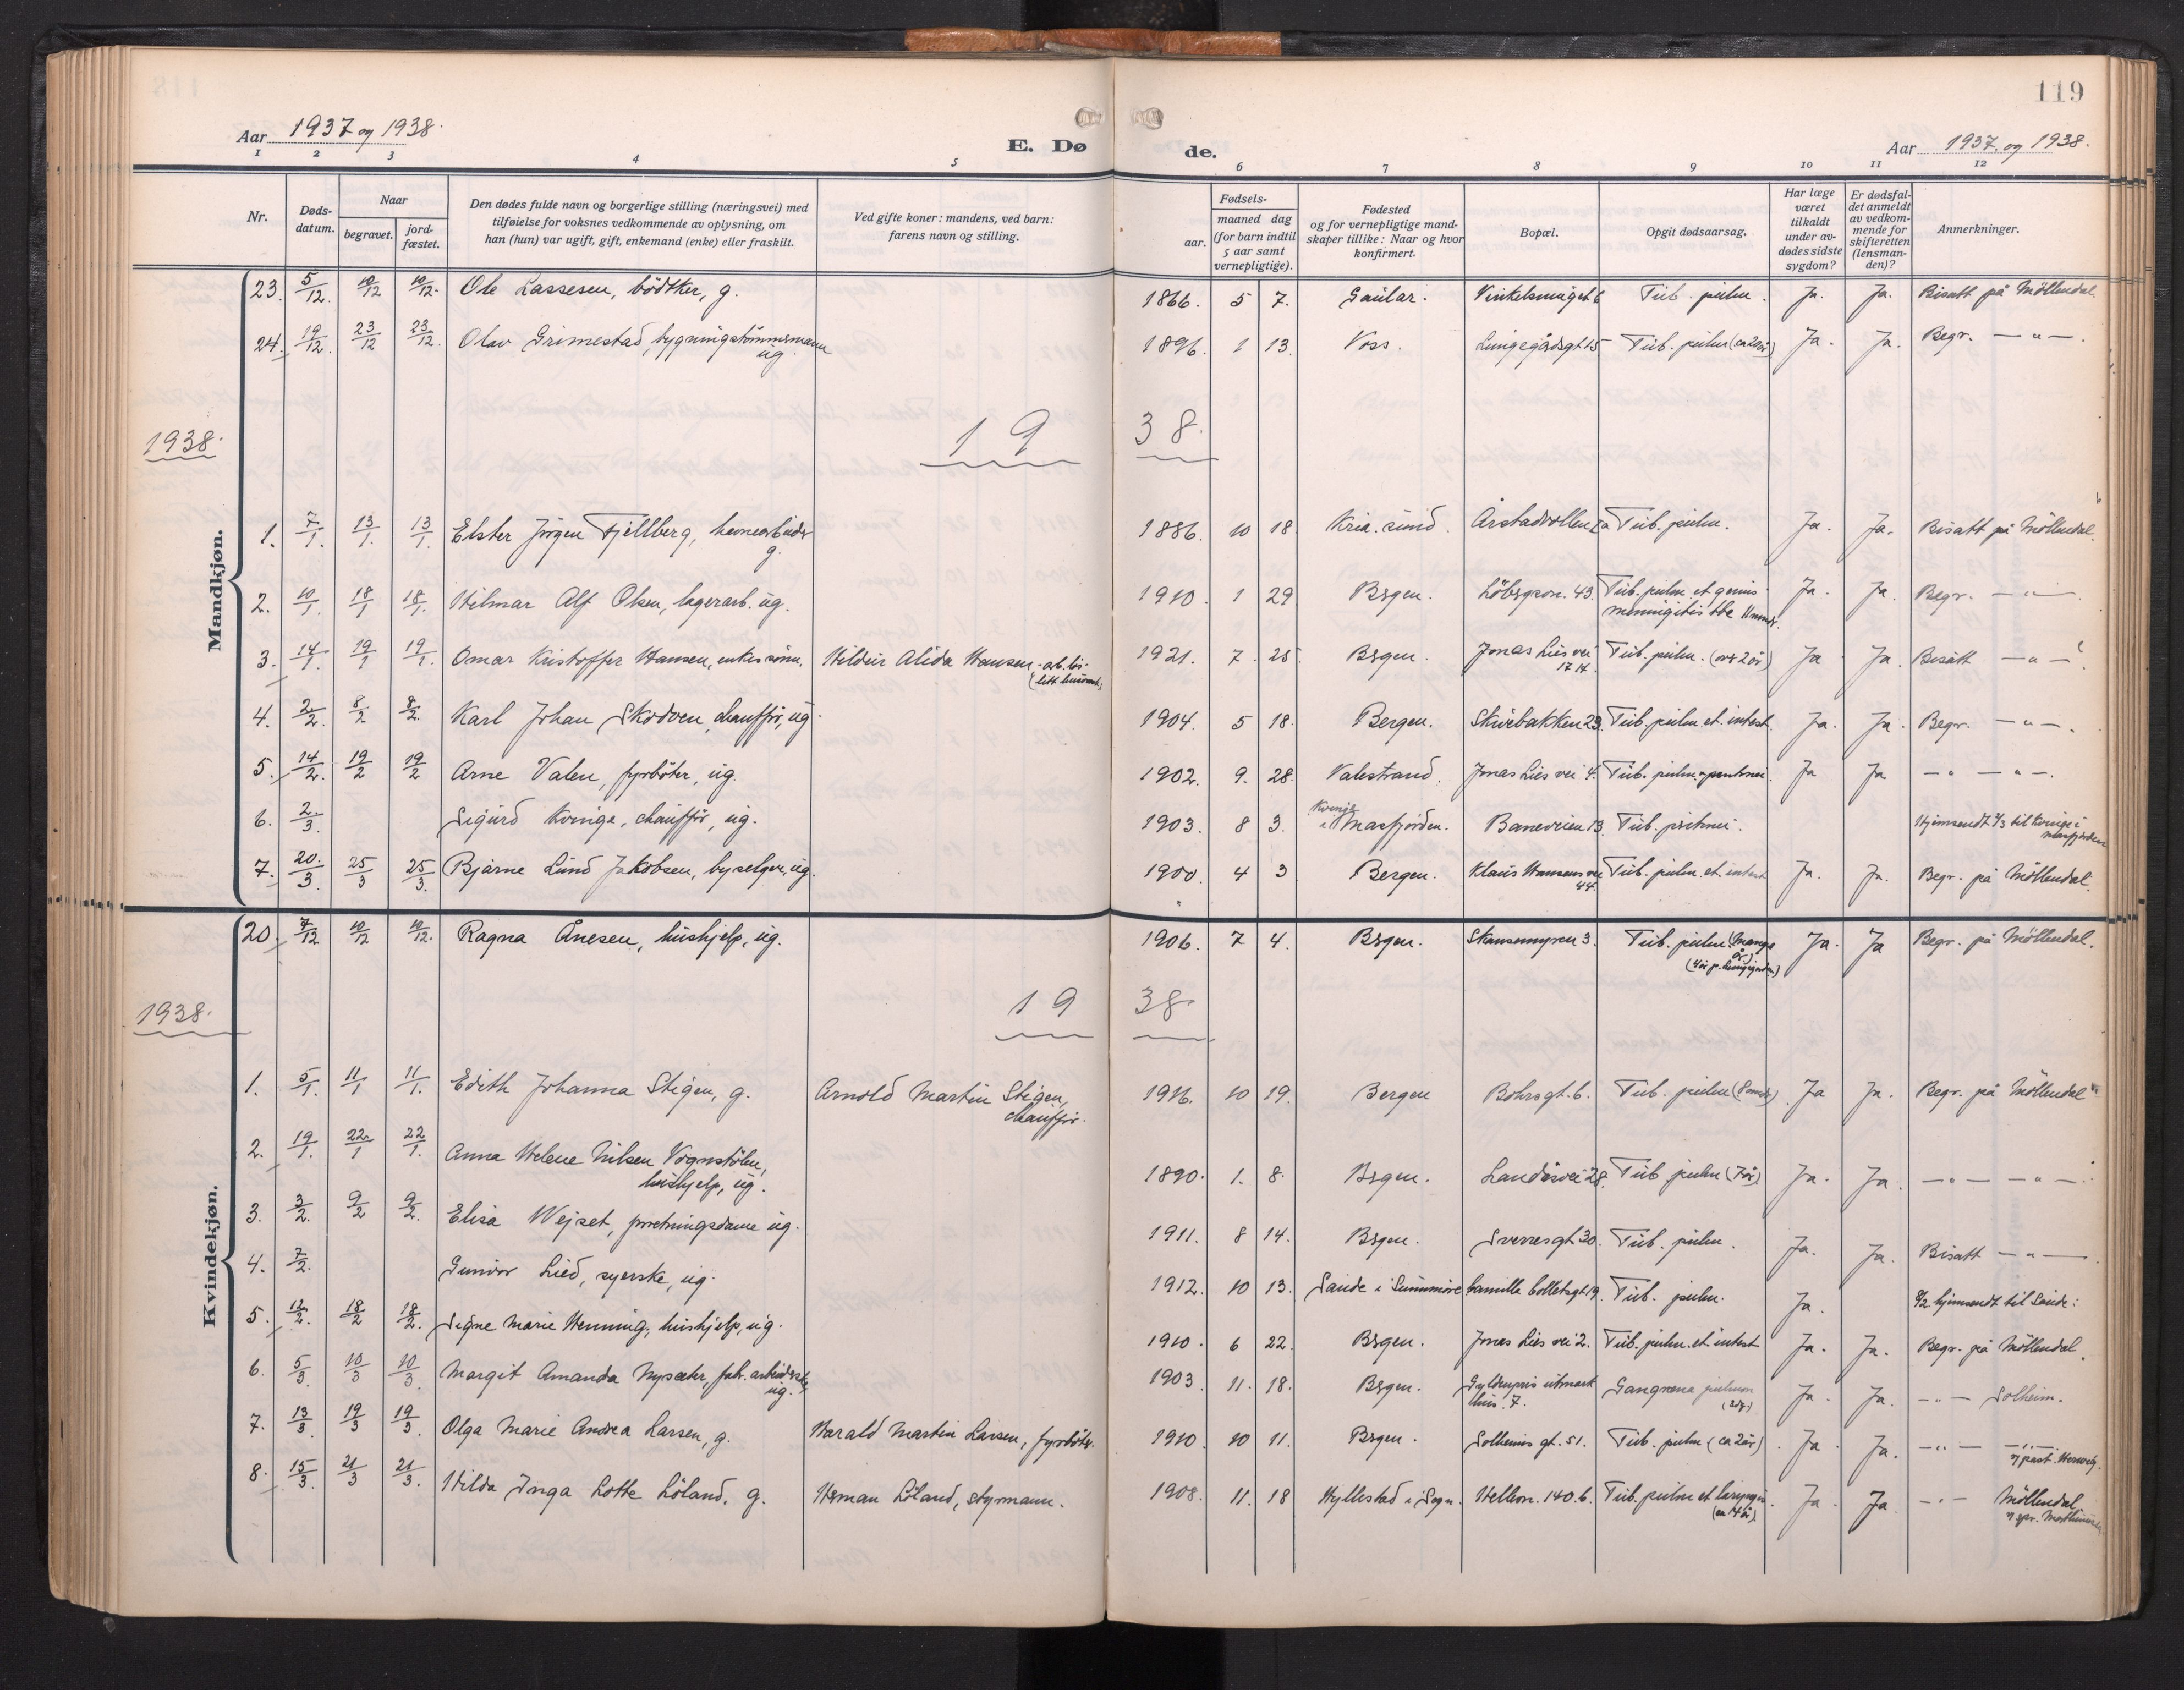 119
Aar 1937 og 1938.
E. Døde.
Aar 1937 og 1938.
1 2 3 4 5 6 7 8 9 10 11 12
Nr.
Døds-datum.
Naar
begravet.
jord-fæstet.
Den dødes fulde navn og borgerlige stilling (næringsvei) med
tilføielse for voksnes vedkommende av oplysning, om
han (hun) var ugift, gift, enkemand (enke) eller fraskilt.
Ved gifte koner: mandens, ved barn:
farens navn og stilling.
Fødsels-
aar.
maaned dag
(for barn indtil
5 aar samt
vernepligtige).
Fødested
og for vernepligtige mand-
skaper tillike: Naar og hvor
konfirmert.
Bopæl.
Opgit dødsaarsag.
Har læge
været
tilkaldt
under av-
dødes sidste
sygdom?
Er dødsfal-
det anmeldt
av vedkom-
mende for
skifteretten
(lensman-
den)?
Anmerkninger.
Mandkjøn.
23. 5/12. 10/12 10/12. Ole Lassesen, bödtker, g. 1866. 5 7. Gaular. Vinkelsmuget 6 Tub. pulm. Ja. Ja. Bisatt på Möllendal.
24. 19/12. 23/12 23/12. Olav Grimestad, bygningstömmermann ug. 1896. 1 13. Voss. Lungegårdsgt 15 Tub. pulm (ca 20 år) Ja. Ja. Begr. — " —.
1938. 19 38.
1. 7/1. 13/1. 13/1. Elster Jörgen Fjellberg, havnearbeider g. 1886. 10 18. Kria.sund. Årstadvollen Tub. pulm. Ja. Ja. Bisatt på Möllendal.
2. 10/1. 18/1 18/1. Hilmar Alf Olsen, lagerarb. ug. 1910. 1 29 Bergen. 43. Tub. pulm. et
meningitis tbc Ja. Ja. Begr. — " —
3. 14/1. 19/1 19/1. Omar Kristoffer Hansen, enkes sönn. Alida Hansen 1921. 7. 25 Bergen. Jonas Lies vei
Tub. pulm. Ja. Ja. Bisatt — " —.
4. 2/2. 8/2 8/2. Karl Johan Skodven, chauffør, ug. 1904. 5 18. Bergen. Skivebakken 23. Tub. pulm. et. intest. Ja. Ja. Begr. — " —.
5. 14/2. 19/2 19/2 Arne Valen, fyrböter, ug. 1902. 9. 28. Valestrand. Jonas Lies vei 4. Tub. pulm. Ja Ja — " — " —.
6. 2/3. Sigurd Kvinge, chauffør, ug. 1903. 8 3. Kvinge
i Masfjorden. Baneveien 13. Tub. Hjemsendt til Kvinge i
Masfjorden
7. 20/3. 25/3 25/3. Bjarne Lund Jakobsen, byselger, ug. 1900. 4 3 Bergen. Klaus Hansens vei
44. Tub. pulm. et. intest Ja. Ja. Begr. på Möllendal.
Kvindekjøn.
20. 7/12 10/12 10/12. Ragna Ånesen, hushjelp, ug. 1906. 7 4. Bergen. Skansemyren 3. Tub. pulm. (Mange
år) Ja. Ja Begr. på Möllendal.
1938. 19 38.
1. 5/1. 11/1 11/1. Edith Johanna Stigen, g. Arnold Martin Stigen,
chauffør. 1916. 10 19. Bergen Bohrsgt. 6. Tub. pulm (8 mndr) Ja Ja. Begr. på Möllendal
2. 19/1. 22/1 22/1. Anna Helene Nilsen Vognstölen,
hushjelp, ug. 1890. 1. 8. Bergen. Landåsvei 28. Tub. pulm (7 år) Ja. Ja. — " — — " —.
3. 3/2. 9/2 9/2. Elisa Wejset, forretningsdame ug. 1911. 8 14. Bergen. Sverresgt 30. Tub. pulm. Ja. Ja. Bisatt — " —.
4. 7/2. Gunvor Lied, syerske, ug. 1912. 10 13. Sande i Sunnmöre Camilla Colletsgt 19. Tub. pulm. Ja. hjemsendt til Sande:
5. 12/2. 18/2 18/2. Signe Marie Henning, hushjelp, ug. 1910. 6 22. Bergen. Jonas Lies vei 2. Tub. pulm. et. intest Ja. Ja. Begr. på Möllendal.
6. 5/3. 10/3 10/3. Margit Amanda Nysæter, fab. arbeiderske,
ug. 1903. 11. 18. Bergen. Gyldenpris utmark
hus. 7. Gangrena pulmon Ja. Ja. — " — Solheim.
7. 13/3. 19/3 19/3. Olga Marie Andrea Larsen, g. Harald Martin Larsen, fyrböter. 1910. 10 11. Bergen. Solheims gt. 51. Tub. pulm (ca 2 år) Ja. Ja. — " — — " —
v/ past.
8. 15/3. 21/3 21/3. Hilda Inga Lotte Löland, g. Herman Löland, styrmann. 1908. 11. 18 Hyllestad i Sogn. Hellen. 140.b. Tub. pulm et laryngis
(ca 14 år) Ja. Ja. — " — Möllendal